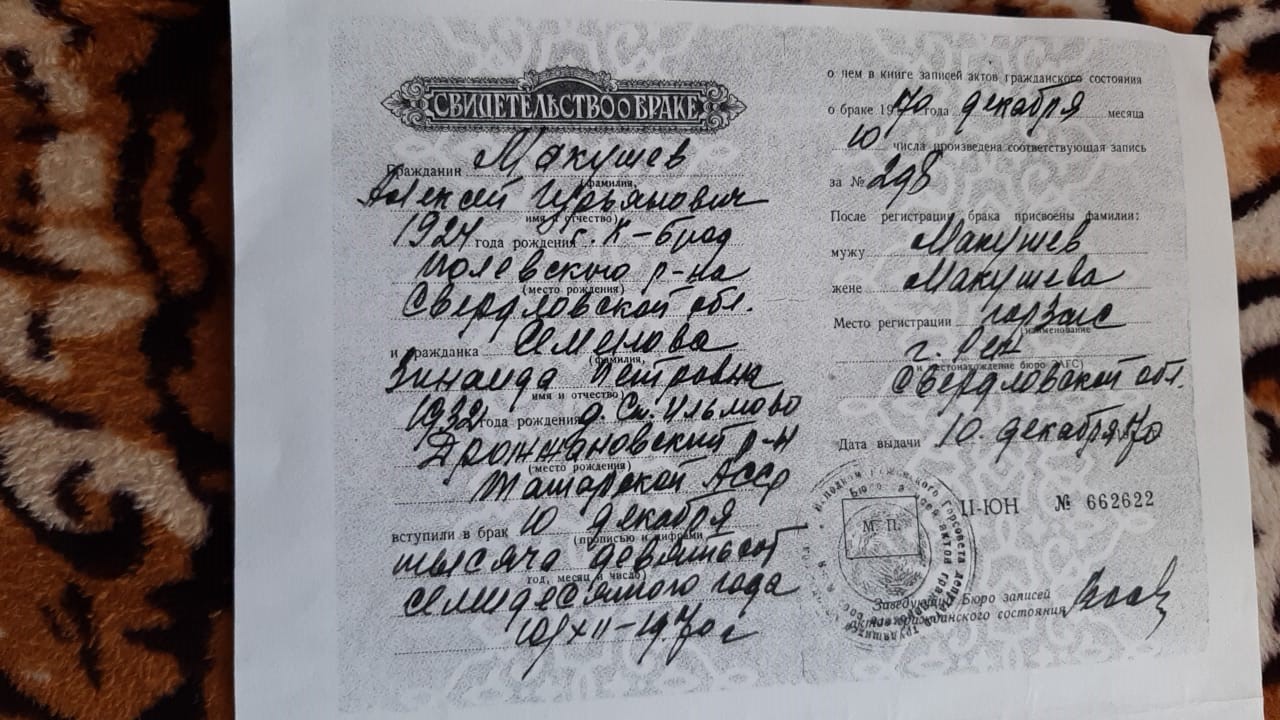 СВИДЕТЕЛЬСТВО О БРАКЕ
Гражданин Макушев
(фамилия,
Алексей Юрьянович
имя и отчество)
1924 года рождения г. К-брод
Полевского р-на
(место рождения)
Свердловской обл.
и гражданка Семенова
(фамилия,
Зинаида Петровна
имя и отчество)
1932 года рождения д. Ст. Ильмово
Дрожжановский р-н
(место рождения)
Татарской АССР
вступили в брак 10 декабря
(прописью и цифрами
тысяча девятьсот
год, месяц и число)
семидесятого года
10/XII-1970 г
о чем в книге записей актов гражданского состояния
о браке 1970 года декабря месяца
10 числа произведена соответствующая запись
за № 298
После регистрации брака присвоены фамилии:
мужу Макушев
жене Макушева
Место регистрации горЗагс
(наименование
г. Реж
и местонахождение бюро ЗАГС)
Свердловской обл.
Дата выдачи 10. декабря 1970
М. П.
II-ЮН № 662622
Заведующий Бюро записей
актов гражданского состояния